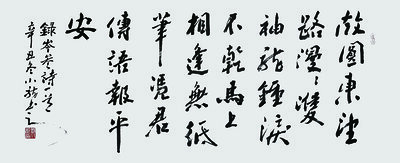 故園東望
路漫〻雙
袖龍鍾淚
不乾馬上
相逢無紙
筆憑君
傳語報平
安
錄岑參詩一首
辛丑冬小龍書